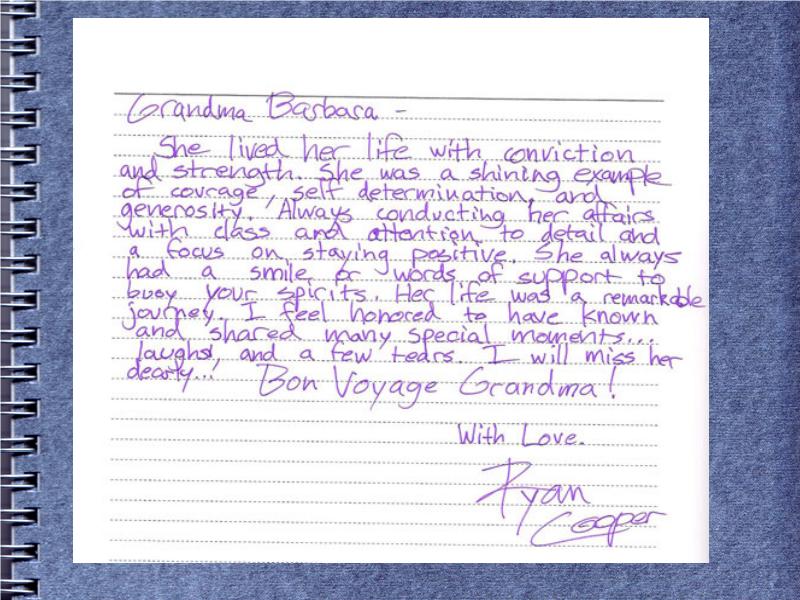 Grandma Barbara -
She lived her life with conviction
and strength. She was a shining example
of courage, self determination, and
generosity. Always conducting her affairs
with class and attention to detail and
a focus on staying positive. She always
had a smile or words of support to
buoy your spirits. Her life was a remarkable
journey. I feel honored to have known
and shared many special moments...
laughs, and a few tears. I will miss her
dearly... Bon Voyage Grandma!
With Love.
Ryan
Cooper